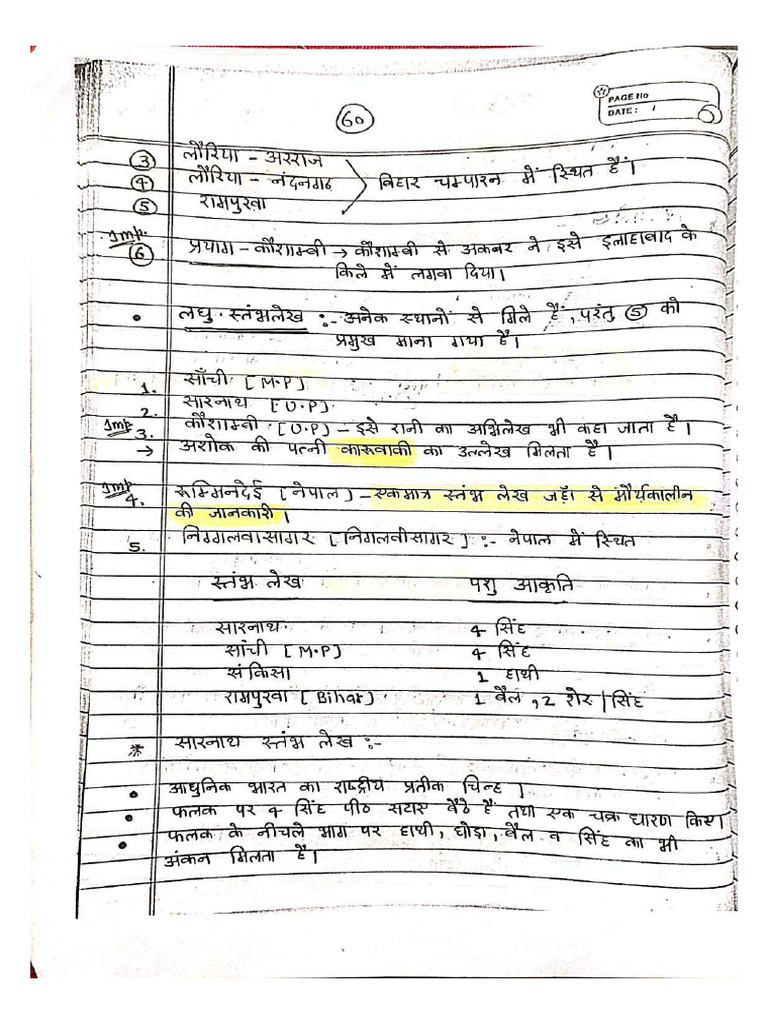 60
PAGE No
DATE:
③ लौरिया - अरराज
④ लौरिया - नंदनगढ़ > बिहार चम्पारन में स्थित हैं।
⑤ रामपुरवा
Imp.
⑥ प्रयाग - कौशाम्बी → कौशाम्बी से अकबर ने इसे इलाहाबाद के
किले में लगवा दिया।
• लघु स्तंभलेख :- अनेक स्थानों से मिले हैं, परंतु ⑤ को
प्रमुख माना गया है।
1. साँची [M.P]
2. सारनाथ [U.P]
Imp 3. कौशाम्बी [U.P] - इसे रानी का अभिलेख भी कहा जाता है।
→ अशोक की पत्नी कारूवाकी का उल्लेख मिलता है।
Imp 4. रूम्मिनदेई [नेपाल] - एकमात्र स्तंभ लेख जहाँ से मौर्यकालीन
की जानकारी।
5. निग्गलवासागर [निगलवीसागर] :- नेपाल में स्थित
स्तंभ लेख पशु आकृति
सारनाथ 4 सिंह
सांची [M.P] 4 सिंह
संकिसा 1 हाथी
रामपुरवा [Bihar] 1 बैल, 2 शेर / सिंह
* सारनाथ स्तंभ लेख :-
• आधुनिक भारत का राष्ट्रीय प्रतीक चिन्ह।
• फलक पर 4 सिंह पीठ सटाए बैठे हैं तथा एक चक्र धारण किए।
• फलक के नीचले भाग पर हाथी, घोड़ा, बैल व सिंह का भी
अंकन मिलता है।